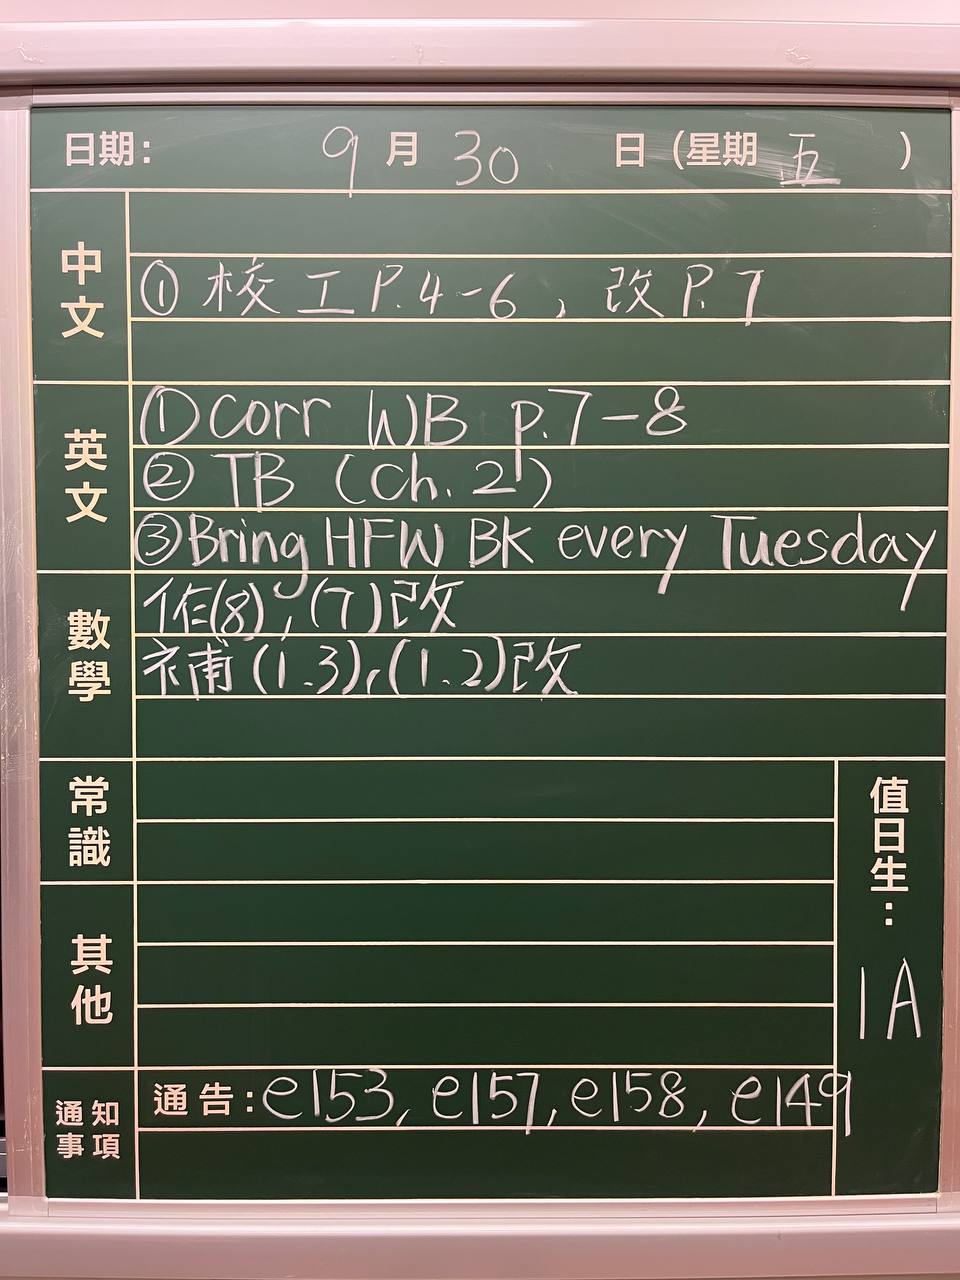 日期： 9 月 30 日 (星期 五 )
中文
① 校工 P.4-6 , 改 P.7
英文
① Corr WB p.7-8
② TB (Ch. 2)
③ Bring HFW BK every Tuesday
數學
作(8), (7)改
補(1.3), (1.2)改
常識
其他
值日生： 1A
通知事項
通告：e153, e157, e158, e149